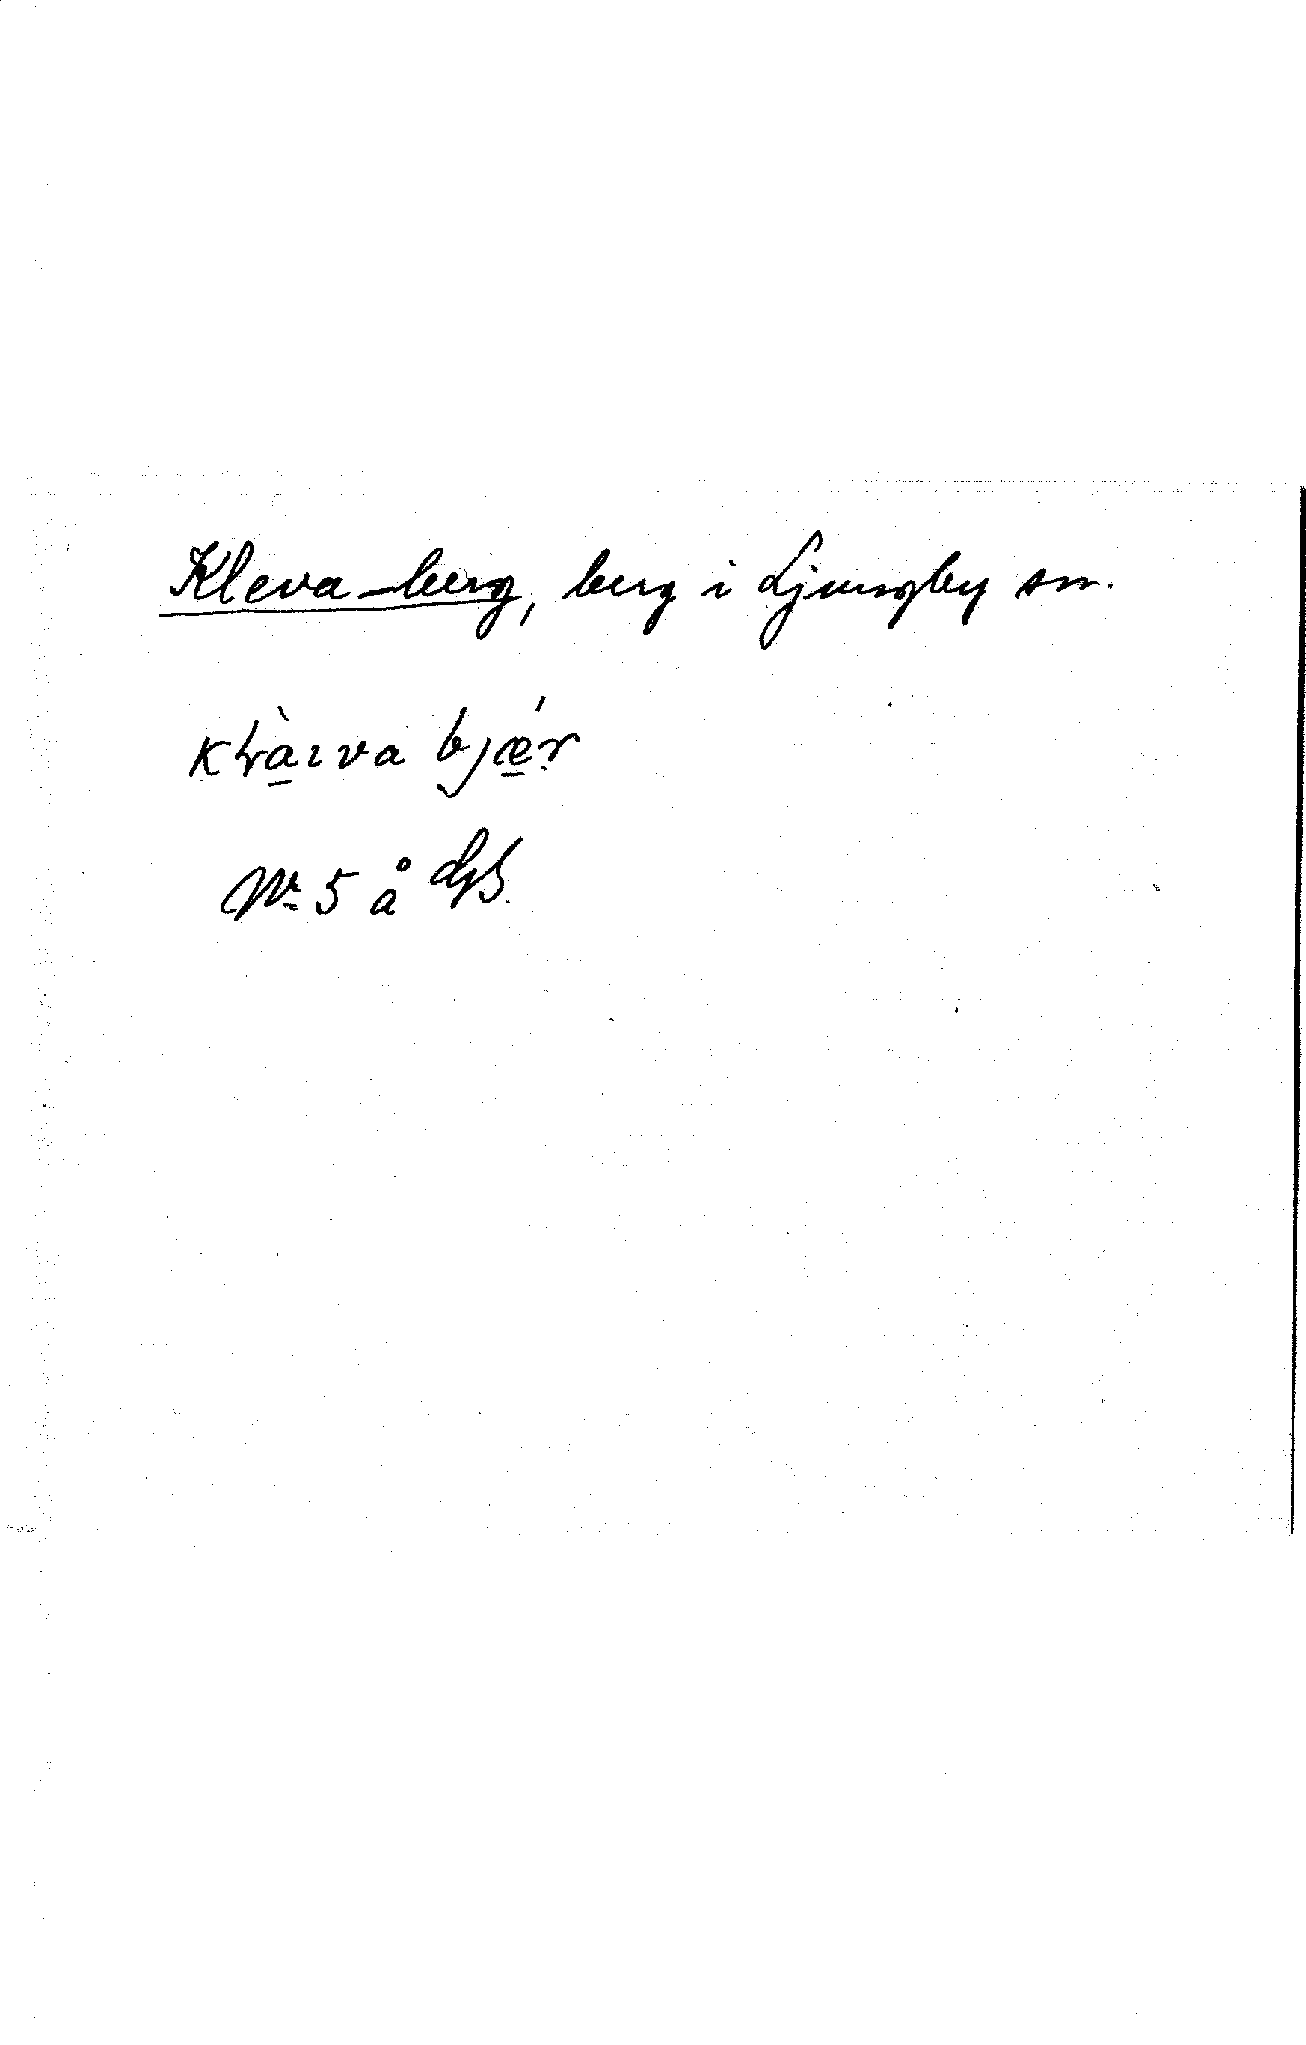 Kleva-berg, berg i Ljungby sn.
kꝉàɪva bjǽr
Nr 5 å